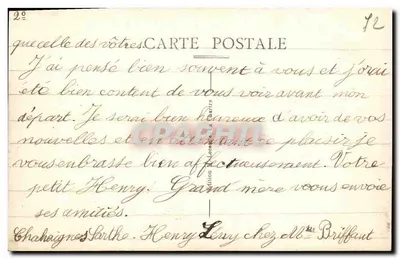 2º
72
que celle des vôtres. CARTE POSTALE
J'ai pensé bien souvent à vous et j'orai
eté bien content de vous voir avant mon
départ. Je serai bien hureux d'avoir de vos
nouvelles et en ce plaisir je
vous enbrasse bien affectueusement. Votre
petit Henry. Grand mère voous envoie
ses amitiés.
Chahaignes Sarthe. Henry Leuy chez Mme Briffaut